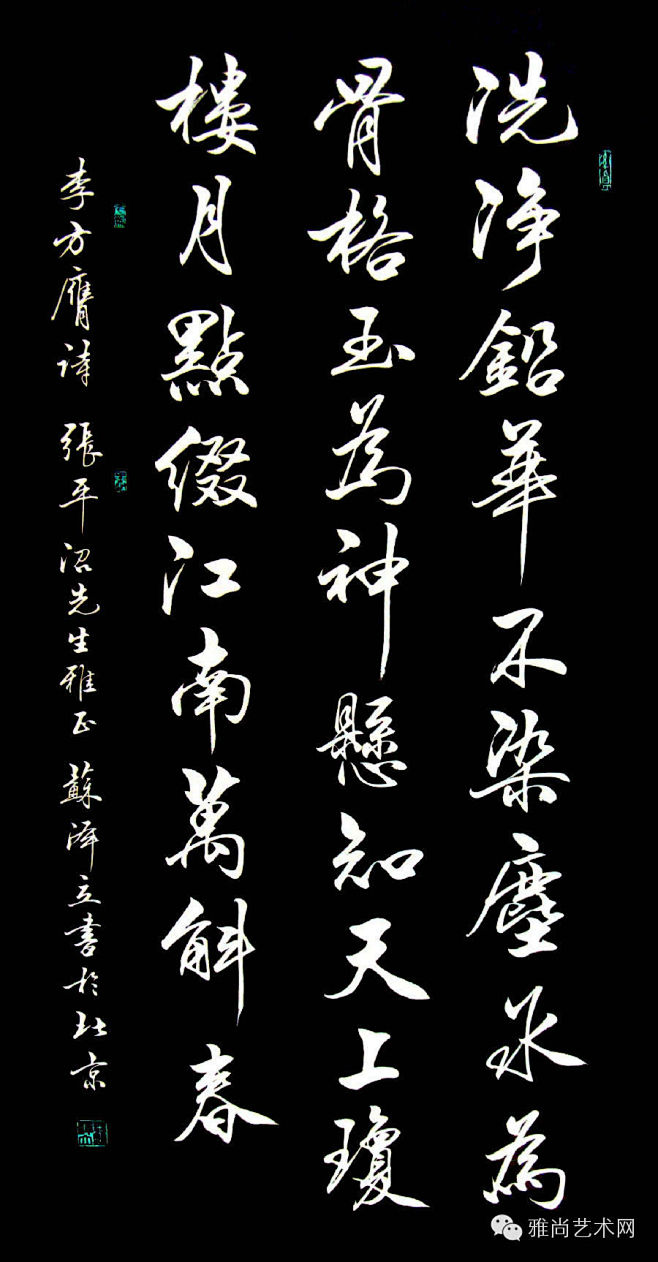 洗净鉛華不染塵冰為
骨格玉為神懸知天上瓊
樓月點缀江南萬斛春
李方膺诗 張平沼先生雅正 蘇澤立書於北京
雅尚艺术网